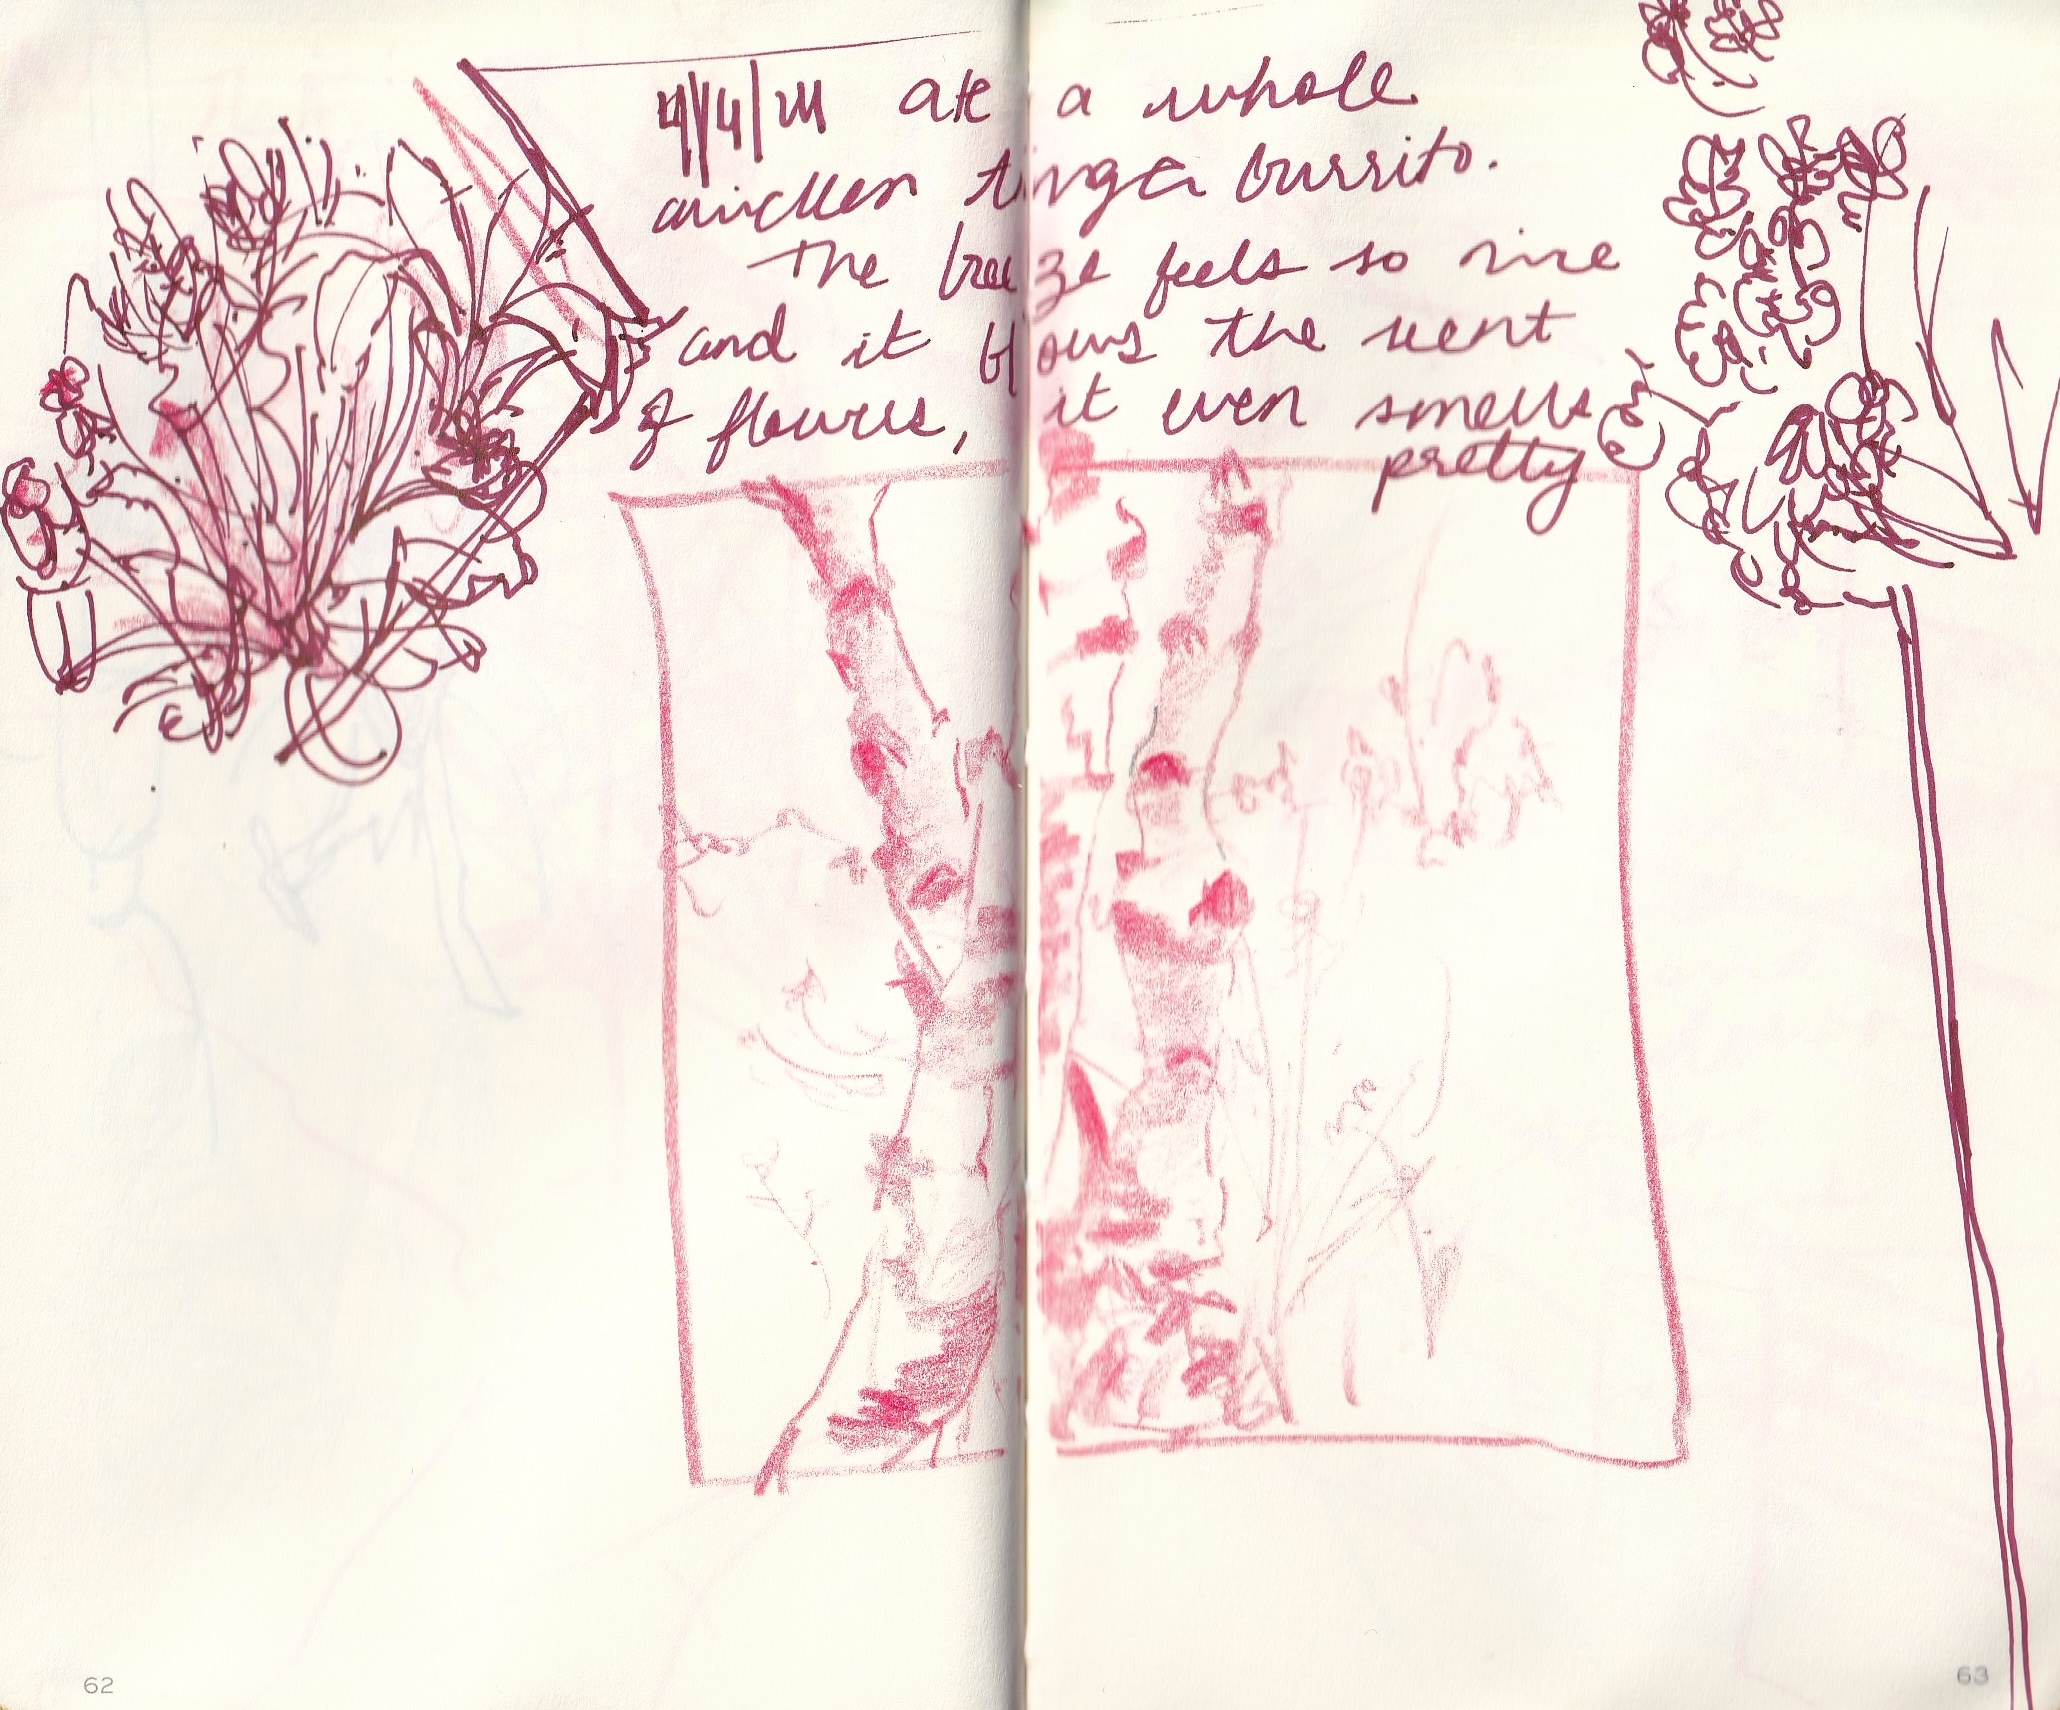 ate a whole
chicken tinga burrito.
The breeze feels so nice
and it blows the scent
of flowers, it even smells
pretty
62
63